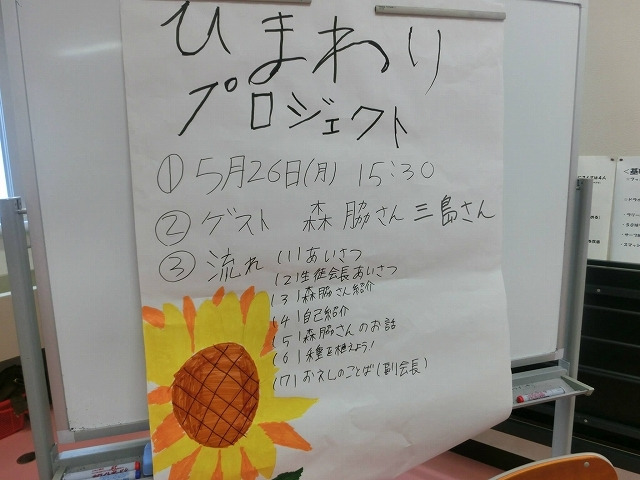 ひまわり
プロジェクト
① 5月26日(月) 15:30
② ゲスト 森脇さん 三島さん
③ 流れ (1)あいさつ
(2)生徒会長あいさつ
(3)森脇さん紹介
(4)自己紹介
(5)森脇さんのお話
(6)種を植えよう!
(7)おれしのことば(副会長)